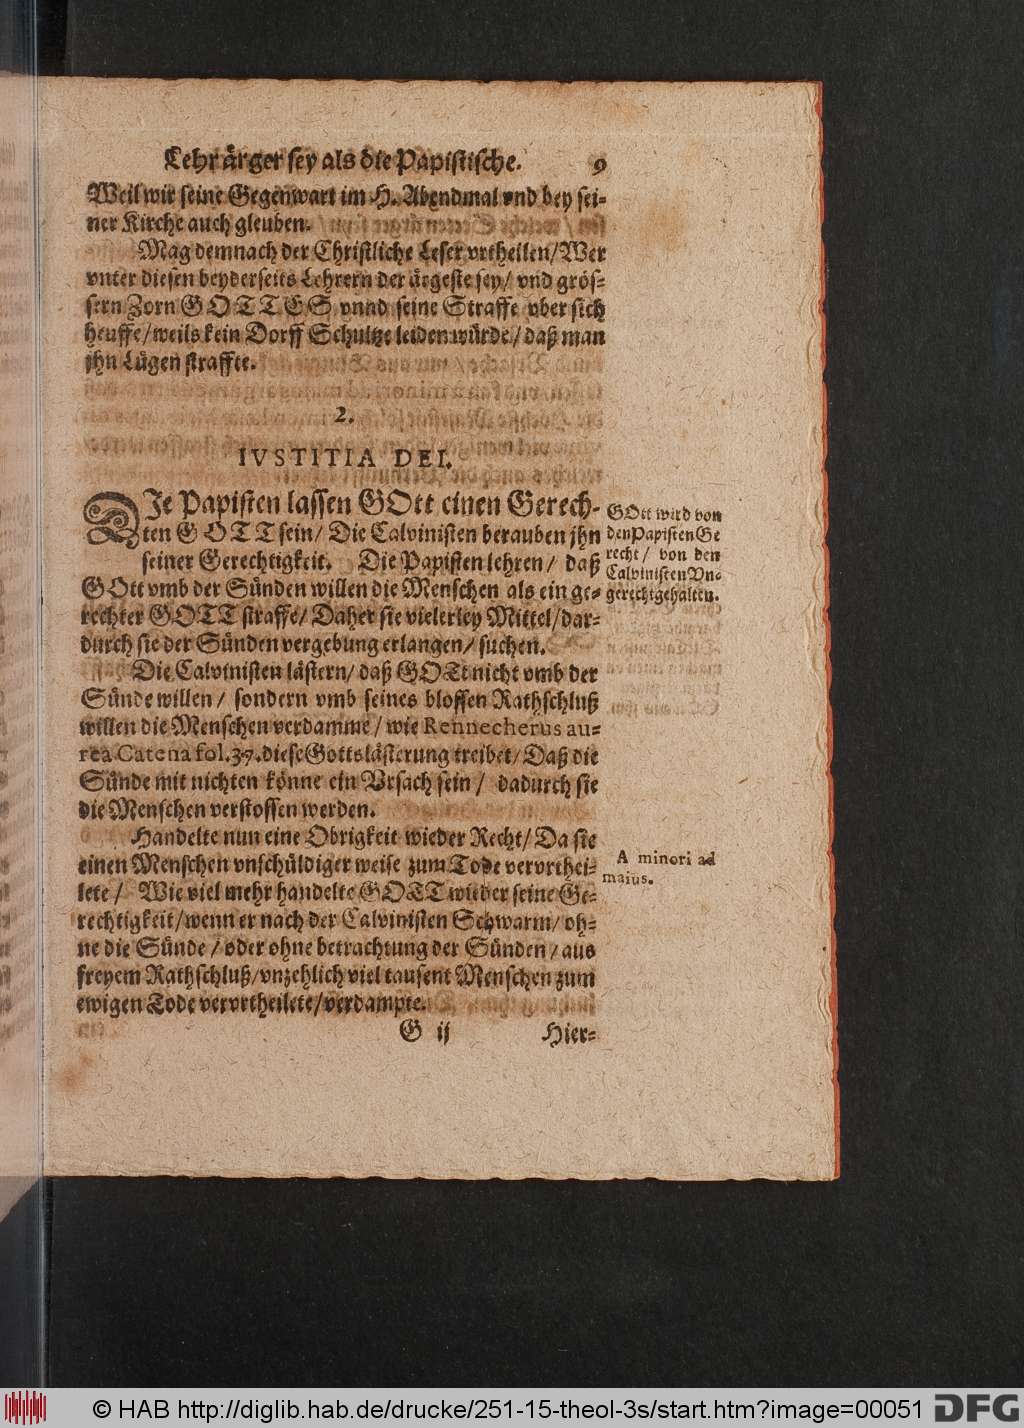 Lehr ärger sey als die Papistische. 9
Weil wir seine Gegenwart im H. Abendmal vnd bey sei-
ner Kirche auch gleuben.
Mag demnach der Christliche Leser vrtheilen/Wer
vnter diesen beyderseits Lehrern der ärgeste sey/ vnd grös-
sern Zorn GOTTES vnnd seine Straffe vber sich
heuffe/weils kein Dorff Schultze leiden würde/ daß man
jhn Lügen straffte.
2.
IVSTITIA DEI.
DIe Papisten lassen GOtt einen Gerech-
ten GOTT sein/ Die Calvinisten berauben jhn
seiner Gerechtigkeit. Die Papisten lehren/ daß
GOtt vmb der Sünden willen die Menschen als ein ge-
rechter GOTT straffe/ Daher sie vielerley Mittel/dar-
durch sie der Sünden vergebung erlangen/ suchen.
GOtt wird von
den Papisten Ge
recht/ von den
Calvinisten Vn-
gerecht gehalten.
Die Calvinisten lästern/ daß GOTt nicht vmb der
Sünde willen/ sondern vmb seines blossen Rathschluß
willen die Menschen verdamme/ wie Rennecherus au-
rea Catena fol. 37. diese Gottslästerung treibet/ Daß die
Sünde mit nichten könne ein Vrsach sein/ dadurch sie
die Menschen verstossen werden.
Handelte nun eine Obrigkeit wieder Recht/ Da sie
einen Menschen vnschüldiger weise zum Tode vervrthei-
lete/ Wie viel mehr handelte GOTT wieder seine Ge-
rechtigkeit/wenn er nach der Calvinisten Schwarm/ oh-
ne die Sünde/ oder ohne betrachtung der Sünden/ aus
freyem Rathschluß/vnzehlich viel tausent Menschen zum
ewigen Tode vervrtheilete/verdampte.
A minori ad
maius.
G ij Hier-
© HAB http://diglib.hab.de/drucke/251-15-theol-3s/start.htm?image=00051
DFG